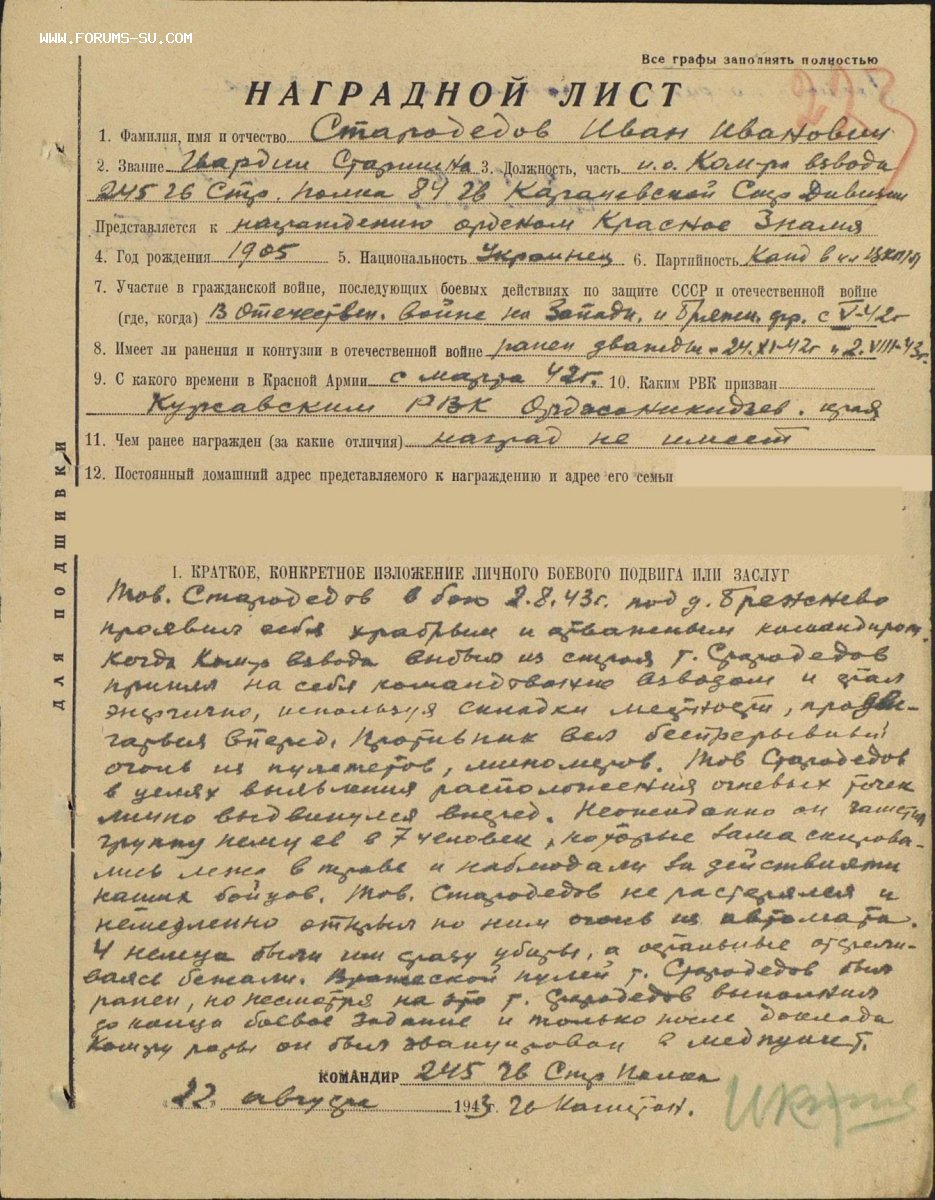 WWW.FORUMS-SU.COM
Все графы заполнять полностью
НАГРАДНОЙ ЛИСТ
1. Фамилия, имя и отчество Стародедов Иван Иванович
2. Звание Гвардии Старшина 3. Должность, часть и.о. Ком-ра взвода
245 гв Стр. полка 84 гв Карачевской Стр Дивизии
Представляется к награждению орденом Красное Знамя
4. Год рождения 1905 5. Национальность Украинец 6. Партийность Канд в чл ВКП/б/
7. Участие в гражданской войне, последующих боевых действиях по защите СССР и отечественной войне
(где, когда) В Отечествен. войне на Западн. и Брянск. фр. с V-42г
8. Имеет ли ранения и контузии в отечественной войне ранен дважды 24.XI-42г и 2.VIII-43г.
9. С какого времени в Красной Армии с марта 42г. 10. Каким РВК призван
Курсавским РВК Орджоникидзев. края
11. Чем ранее награжден (за какие отличия) наград не имеет
12. Постоянный домашний адрес представляемого к награждению и адрес его семьи
ДЛЯ ПОДШИВКИ
I. КРАТКОЕ, КОНКРЕТНОЕ ИЗЛОЖЕНИЕ ЛИЧНОГО БОЕВОГО ПОДВИГА ИЛИ ЗАСЛУГ
Тов. Стародедов в бою 2.8.43г. под д. Брежнево
проявил себя храбрым и отважным командиром.
Когда Ком-р взвода выбыл из строя т. Стародедов
принял на себя командование взводом и стал
энергично, используя складки местности, продви-
гаться вперед. Противник вел беспрерывный
огонь из пулеметов, минометов. Тов Стародедов
в целях выявления расположения огневых точек
лично выдвинулся вперед. Неожиданно он заметил
группу немцев в 7 человек, которые замаскирова-
лись лежа в траве и наблюдали за действиями
наших бойцов. Тов. Стародедов не растерялся и
немедленно открыл по ним огонь из автомата.
4 немца были им сразу убиты, а остальные отстрели-
ваясь бежали. Вражеской пулей т. Стародедов был
ранен, но несмотря на это т. Стародедов выполнил
до конца боевое задание и только после доклада
Ком-ру роты он был эвакуирован в медпункт.
КОМАНДИР 245 гв Стр Полка
22 августа 1943г. гв Капитан.